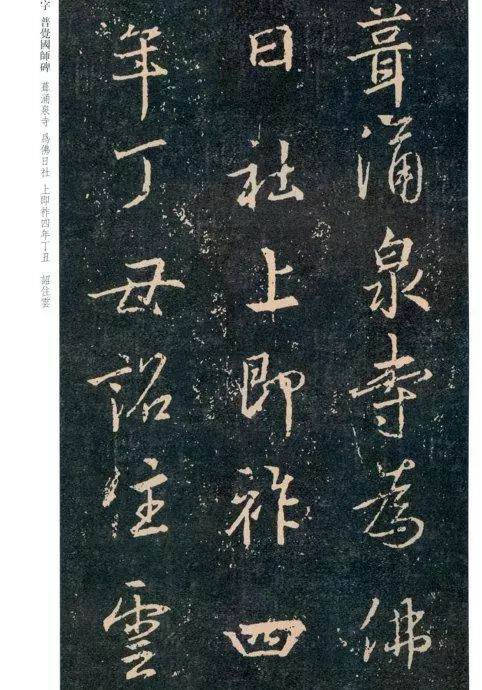 葺涌泉寺為佛
日社上即祚四
年丁丑詔住雲
字 普覺國師碑
葺涌泉寺 爲佛日社 上即祚四年丁丑 詔住雲